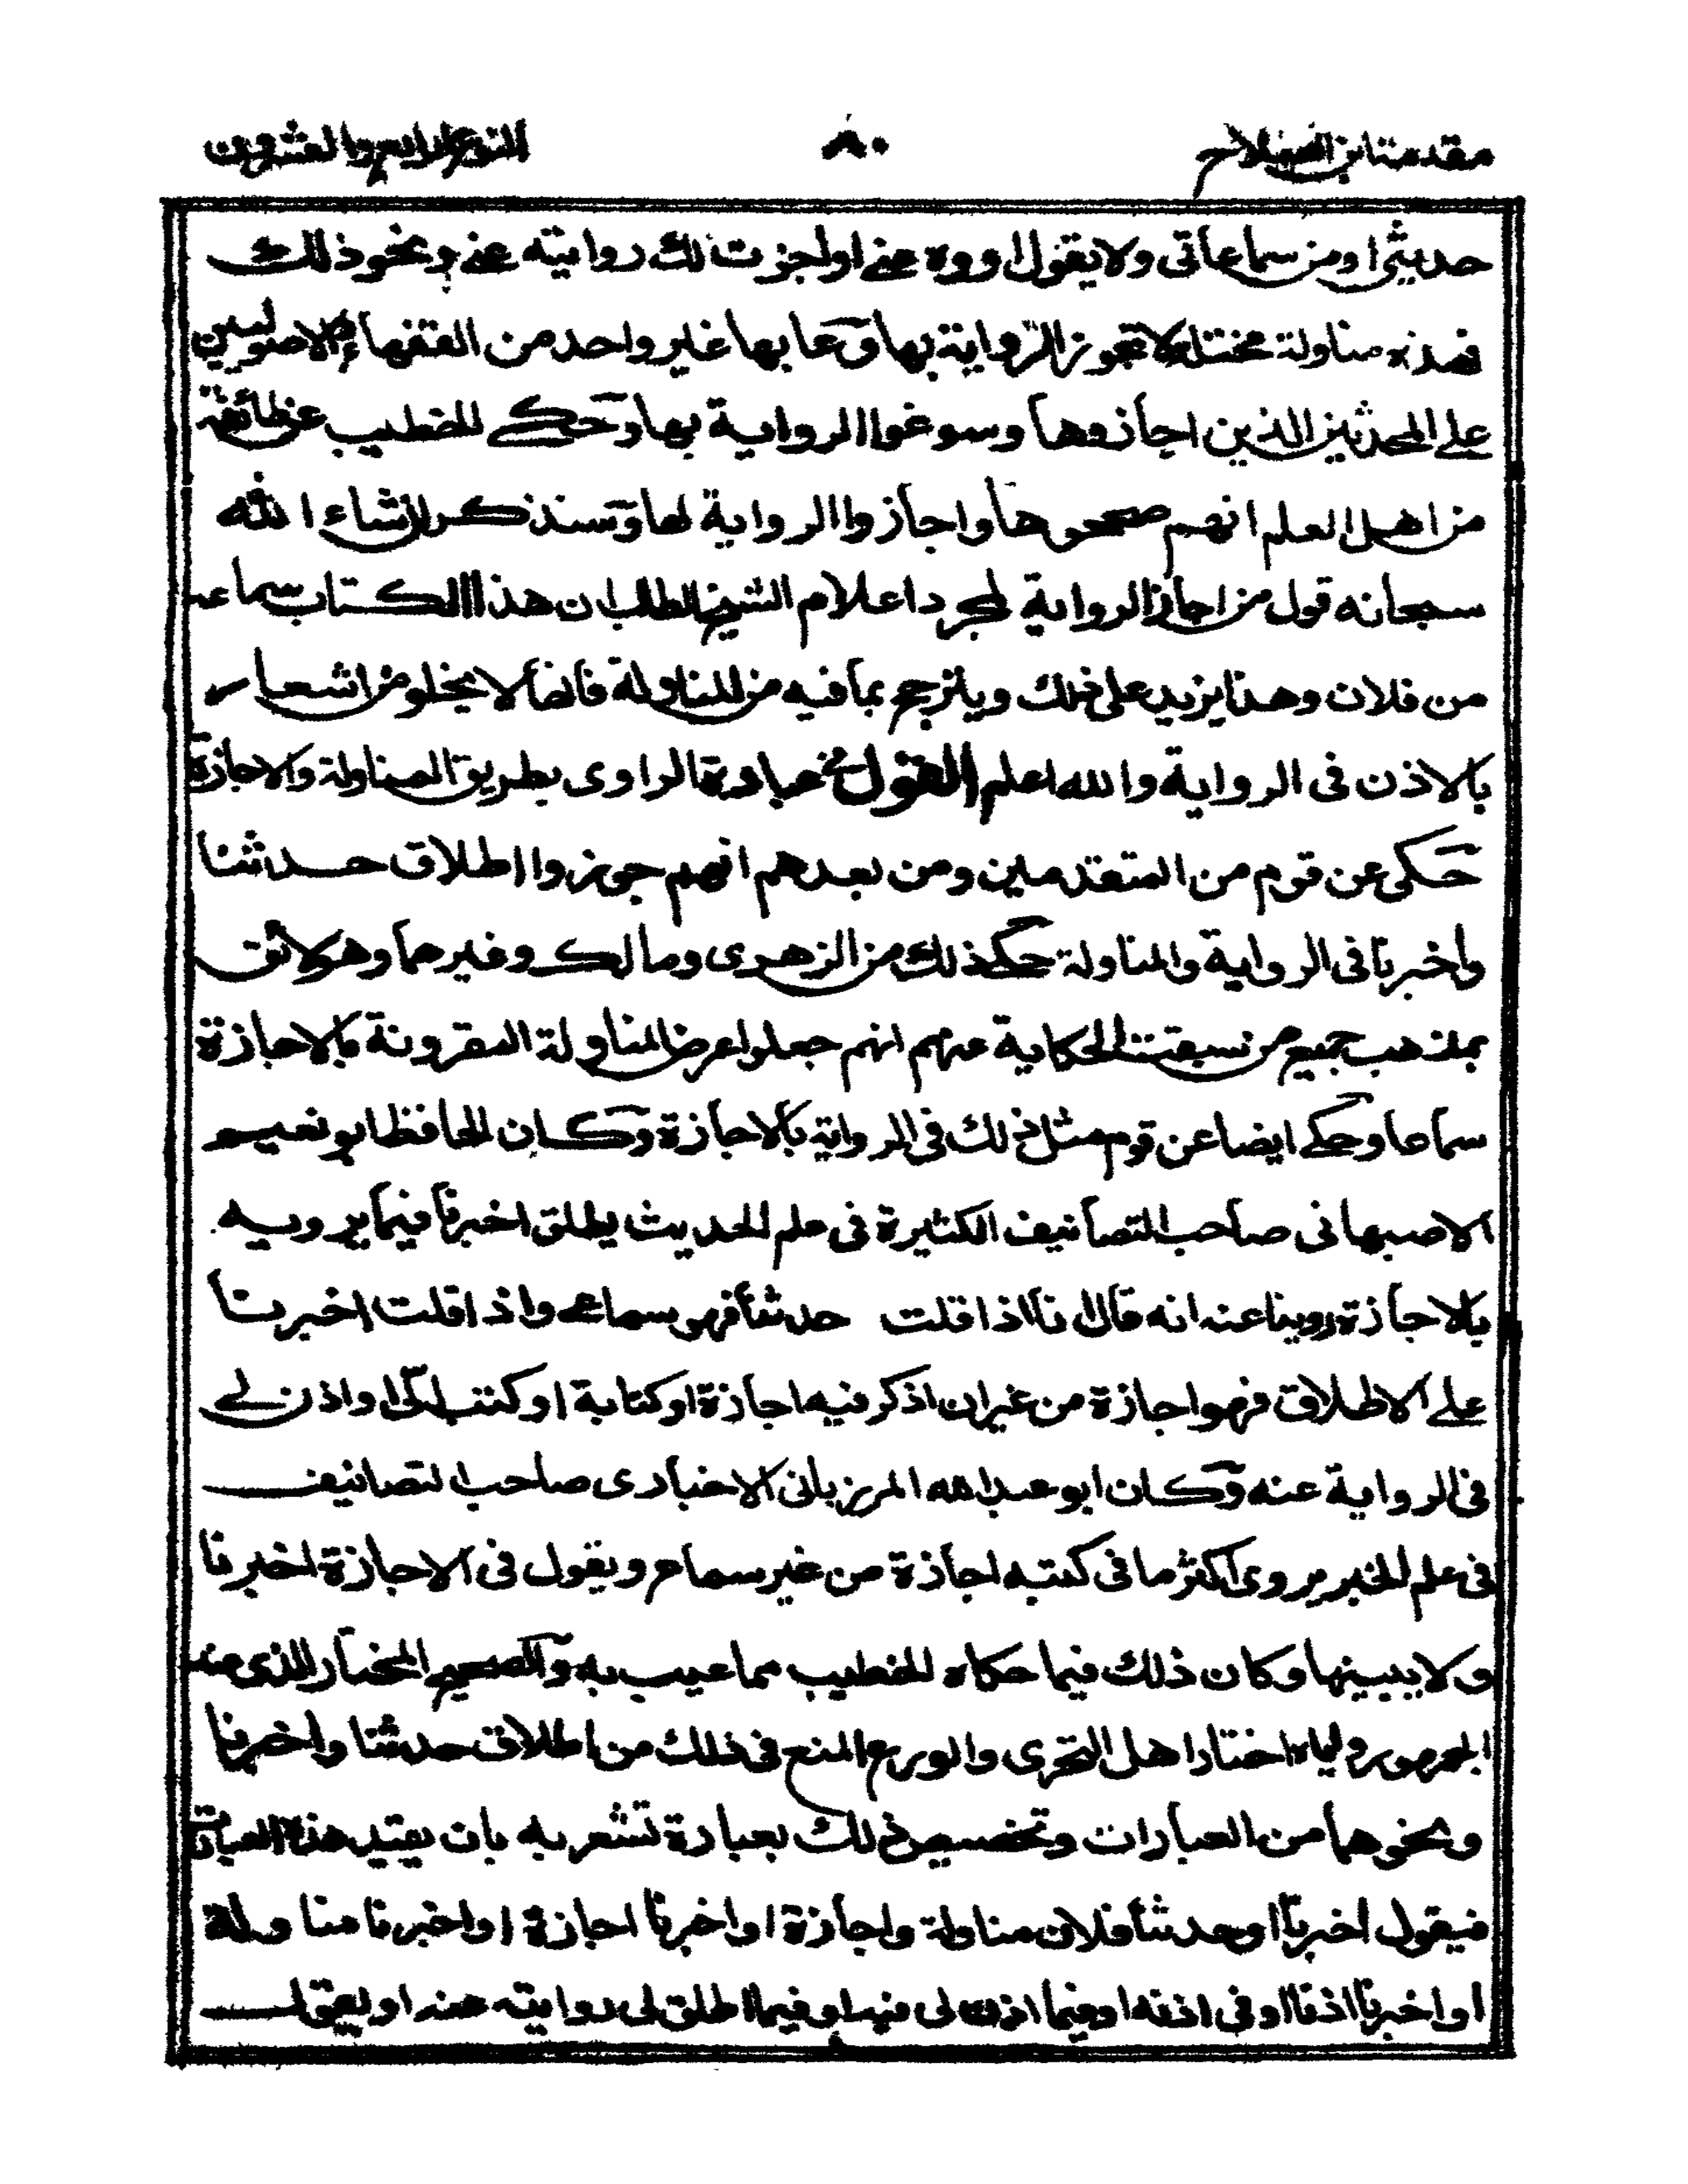 مقدمة ابن الصلاح
٨٠
النوع الرابع والعشرون
حديثى او من سماعاتى ولا يقول اروه عنى او اجزت لك روايته عنى ونحو ذلك
فهذه مناولة مختلة لا تجوز الرواية بها وعابها غير واحد من الفقهاء والاصوليين
على المحدثين الذين اجازوها وسوغوا الرواية بها وحكى الخطيب عن طائفة
من اهل العلم انهم صححوها واجازوا الرواية لها وسنذكر ان شاء الله
سبحانه قول من اجاز الرواية لمجرد اعلام الشيخ الطالب ان هذا الكتاب سماعه
من فلان وهذا يزيد على ذلك ويترجح بما فيه من المناولة فانها لا يخلو من اشعار
بالاذن فى الرواية والله اعلم القول فى عبارة الراوى بطريق المناولة والاجازة
حكى عن قوم من المتقدمين ومن بعدهم انهم جوزوا اطلاق حدثنا
واخبرنا فى الرواية والمناولة حكى ذلك من الزهرى ومالك وغيرهما وهو لائق
بمذهب جميع من سبقت الحكاية عنهم انهم جعلوا عرض المناولة المقرونة بالاجازة
سماعا وحكى ايضا عن قوم مثل ذلك فى الرواية بالاجازة وكان الحافظ ابو نعيم
الاصبهانى صاحب التصانيف الكثيرة فى علم الحديث يطلق اخبرنا فيما يرويه
بالاجازة روينا عنه انه قال انا اذا قلت حدثنا فهو سماعى واذا قلت اخبرنا
على الاطلاق فهو اجازة من غير ان اذكر فيه اجازة او كتابة او كتب الى او اذن لى
فى الرواية عنه وكان ابو عبد الله المرزبانى الاخبارى صاحب التصانيف
فى علم الخبر يروى اكثر ما فى كتبه اجازة من غير سماع ويقول فى الاجازة اخبرنا
ولا يبينها وكان ذلك فيما حكاه الخطيب مما عيب به والصحيح المختار الذى عنه
الجمهور واياه اختار اهل التحرى والورع المنع فى ذلك من اطلاق حدثنا واخبرنا
ونحوهما من العبارات وتخصيص ذلك بعبارة تشعر به بان يقيد هذه العبارات
فيقول اخبرنا او حدثنا فلان مناولة واجازة او اخبرنا اجازة او اخبرنا مناولة
او اخبرنا اذنا او فى اذنه او فيما اذن لى فيه او فيما اطلق لى روايته عنه او يقول